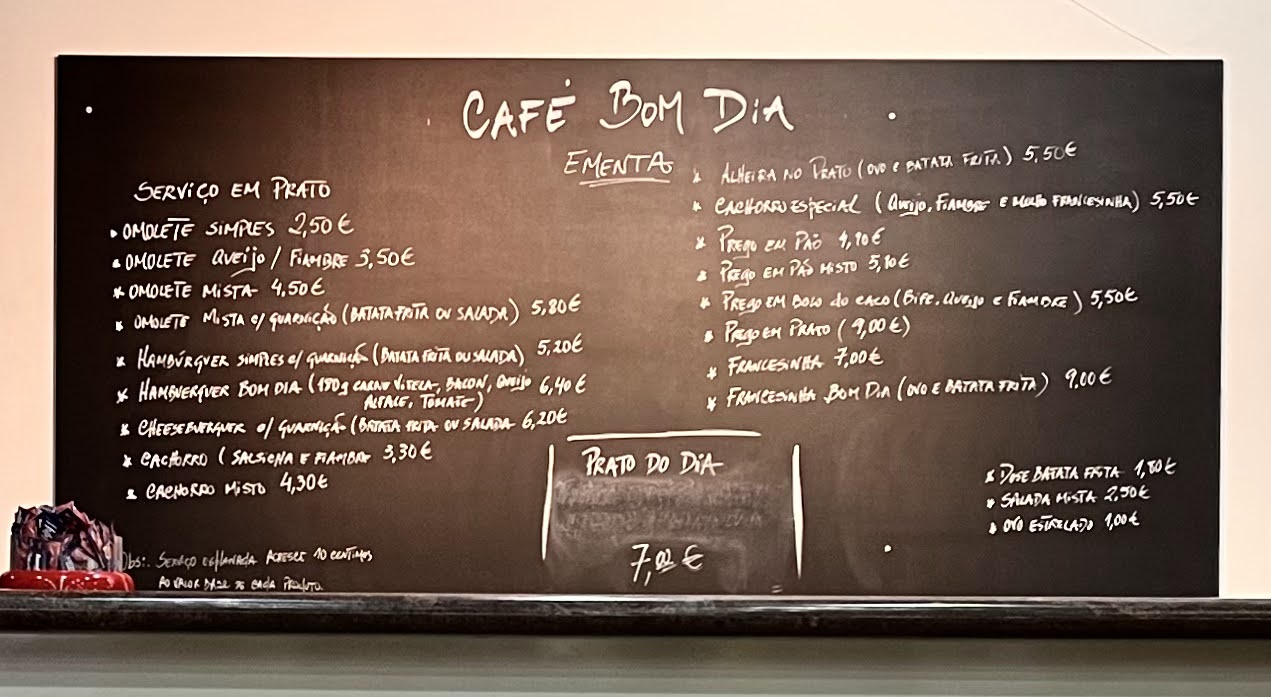 CAFÉ BOM DIA
EMENTA
SERVIÇO EM PRATO
OMOLETE SIMPLES 2,50€
OMOLETE QUEIJO / FIAMBRE 3,50€
OMOLETE MISTA 4,50€
OMOLETE MISTA C/ GUARNIÇÃO (BATATA FRITA OU SALADA) 5,80€
HAMBÚRGUER SIMPLES C/ GUARNIÇÃ (BATATA FRITA OU SALADA) 5,20€
HAMBUERGUER BOM DIA (180g CARNE VITELA, BACON, QUEIJO 6,40€
ALFACE, TOMATE)
CHEESEBUERGUER C/ GUARNIÇÃO (BATATA FRITA OU SALADA 6,20€
CACHORRO (SALSICHA E FIAMBRE 3,30€
CACHORRO MISTO 4,30€
Obs:. SERVIÇO ESPLANADA ACRESCE 10 CENTIMOS
AO VALOR BASE DE CADA PRODUTO.
ALHEIRA NO PRATO (OVO E BATATA FRITA) 5,50€
CACHORRO ESPECIAL (QUEIJO, FIAMBRE E MOLHO FRANCESINHA) 5,50€
PREGO EM PÃO 4,10€
PREGO EM PÃO MISTO 5,10€
PREGO EM BOLO do CACO (BIFE, QUEIJO E FIAMBRE) 5,50€
PREGO EM PRATO (9,00€)
FRANCESINHA 7,00€
FRANCESINHA BOM DIA (OVO E BATATA FRITA) 9,00€
PRATO DO DIA
7,00 €
DOSE BATATA FRITA 1,80€
SALADA MISTA 2,50€
OVO ESTRELADO 1,00€